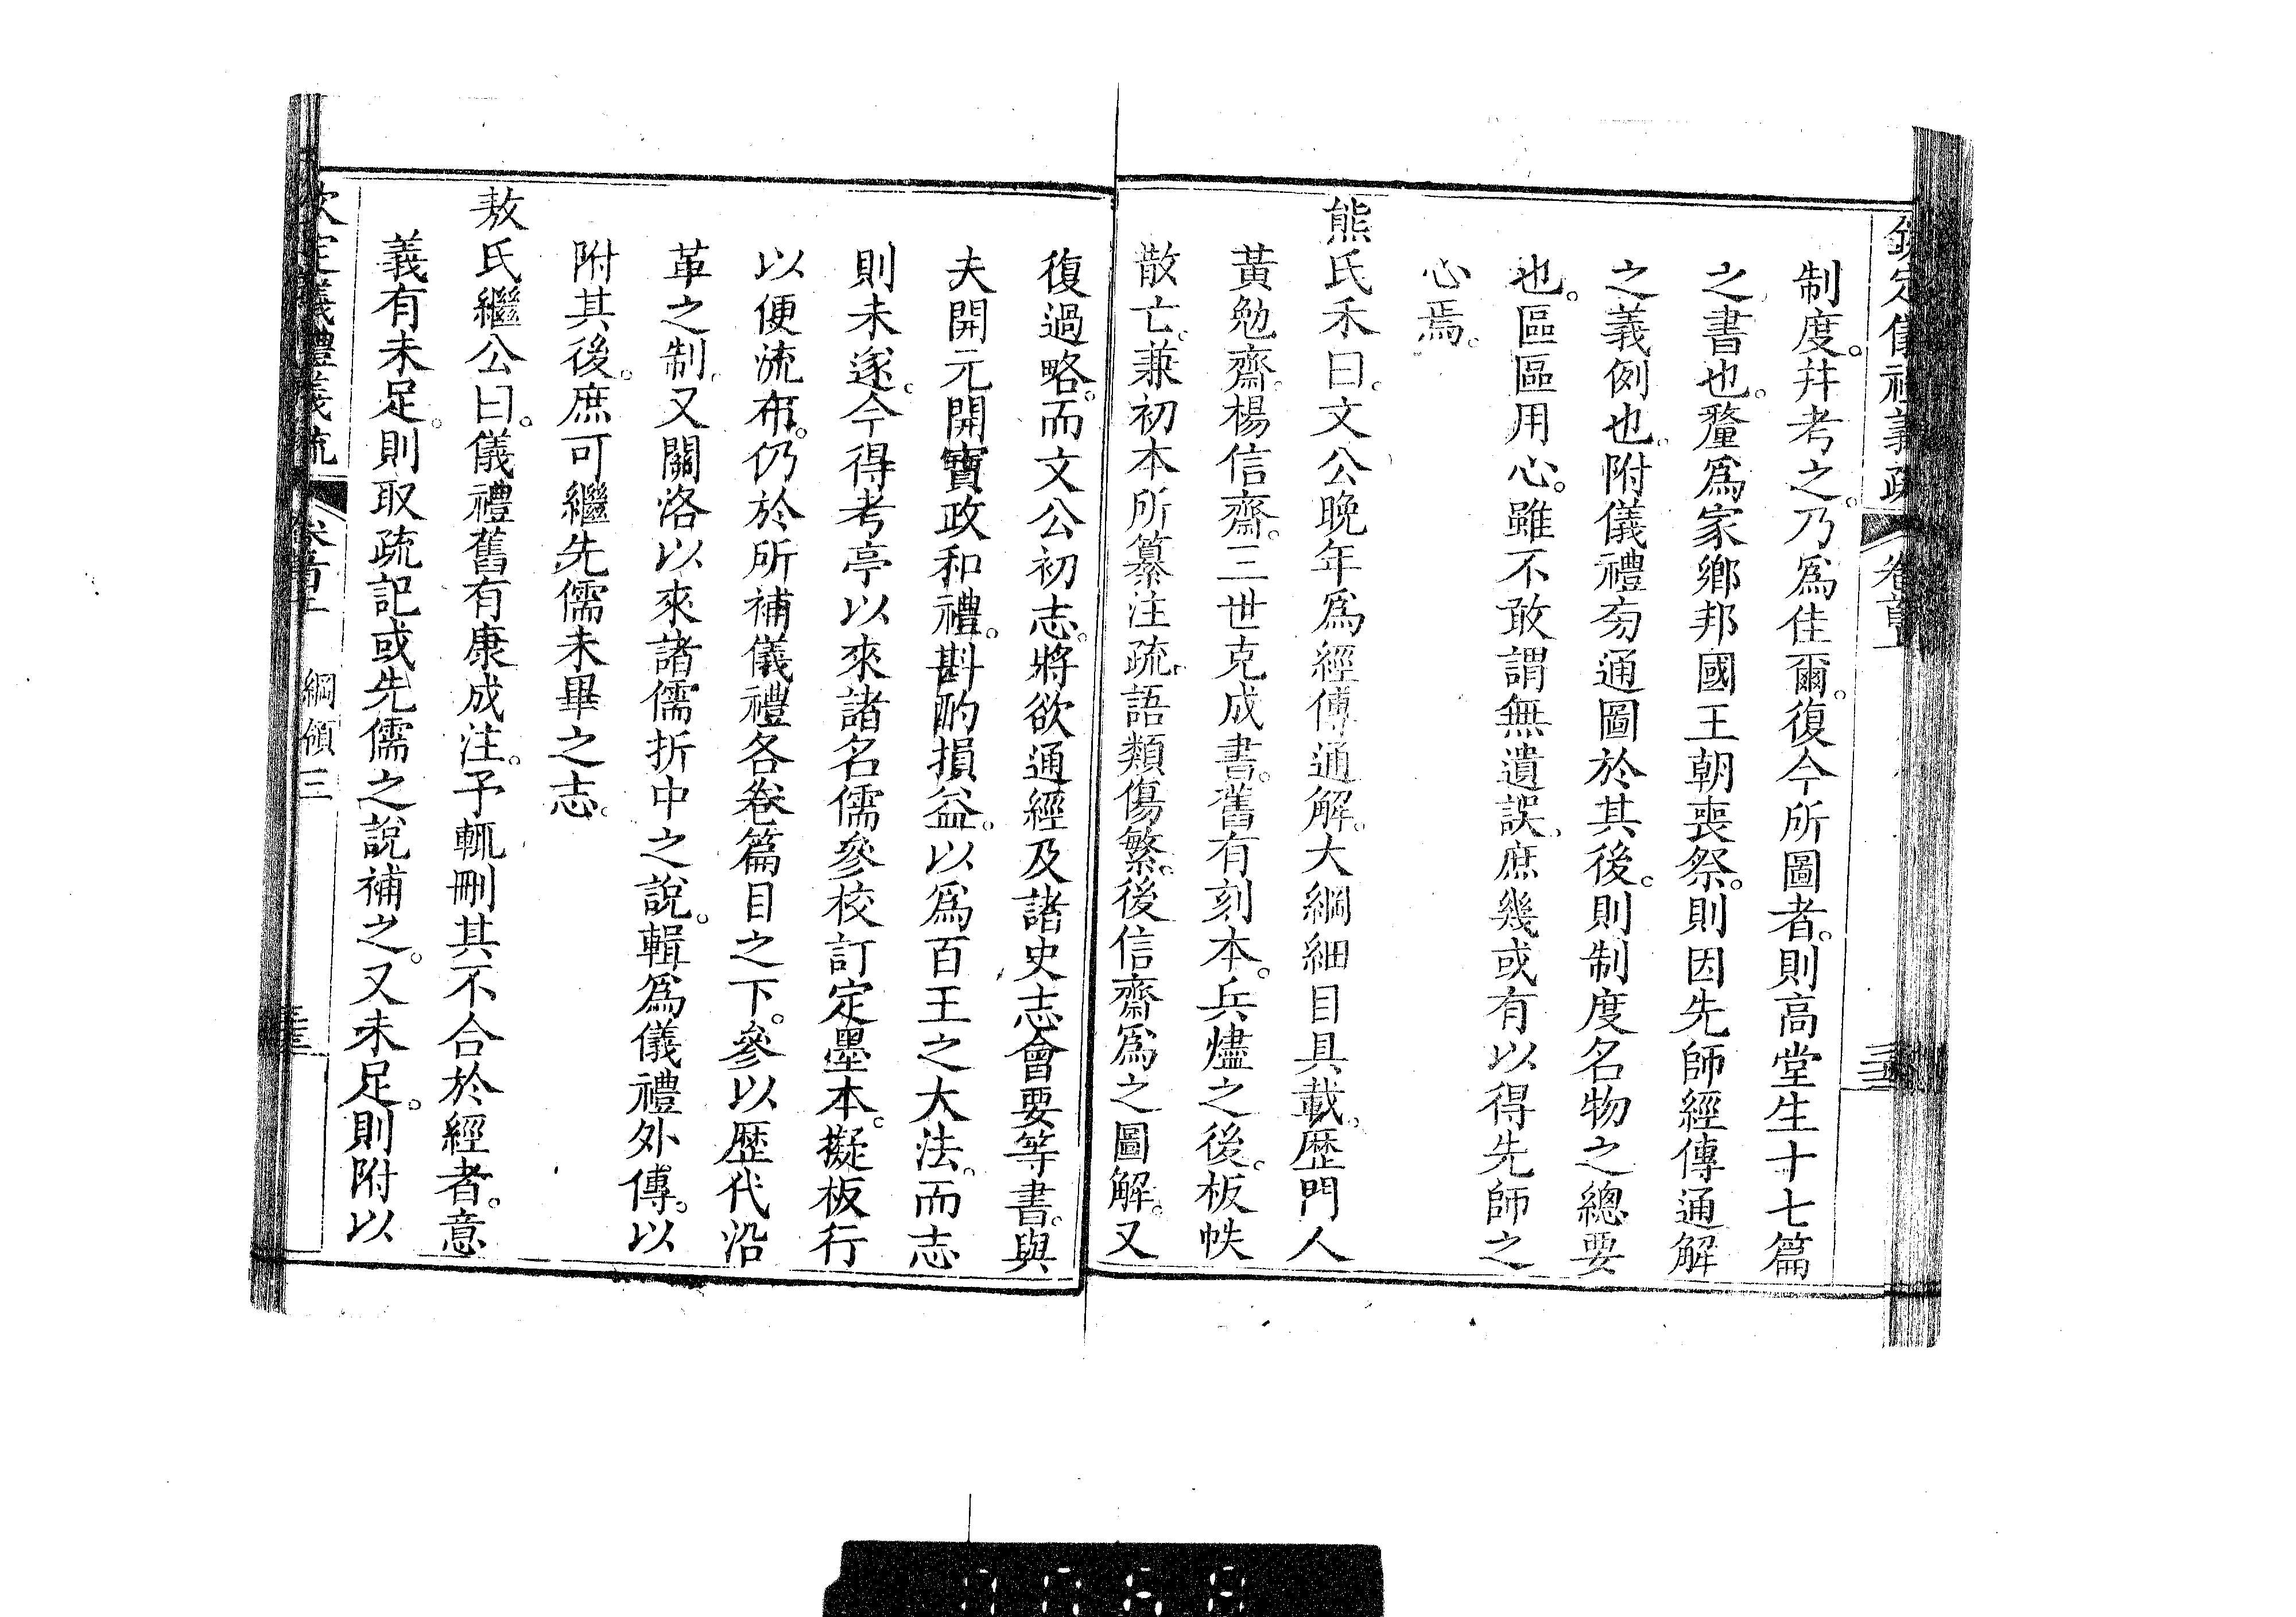 欽定儀禮義疏 卷首上
制度。幷考之。乃爲佳爾。復今所圖者。則高堂生十七篇
之書也。釐爲家鄉邦國王朝喪祭。則因先師經傳通解
之義例也。附儀禮旁通圖於其後。則制度名物之總要
也。區區用心。雖不敢謂無遺誤。庶幾或有以得先師之
心焉。
熊氏禾曰。文公晚年爲經傳通解。大綱細目具載。歷門人
黃勉齋。楊信齋。三世克成書。舊有刻本。兵燼之後。板帙
散亡。兼初本所纂注疏。語類傷繁。後信齋爲之圖解。又
復過略。而文公初志。將欲通經及諸史志會要等書。與
夫開元開寶政和禮。斟酌損益。以爲百王之大法。而志
則未遂。今得考亭以來諸名儒參校訂定墨本。擬板行
以便流布。仍於所補儀禮各卷篇目之下。參以歷代沿
革之制。又關洛以來諸儒折中之說。輯爲儀禮外傳。以
附其後。庶可繼先儒未畢之志。
敖氏繼公曰。儀禮舊有康成注。予輒刪其不合於經者。意
義有未足。則取疏記或先儒之說補之。又未足。則附以
欽定儀禮義疏 卷首上 綱領三